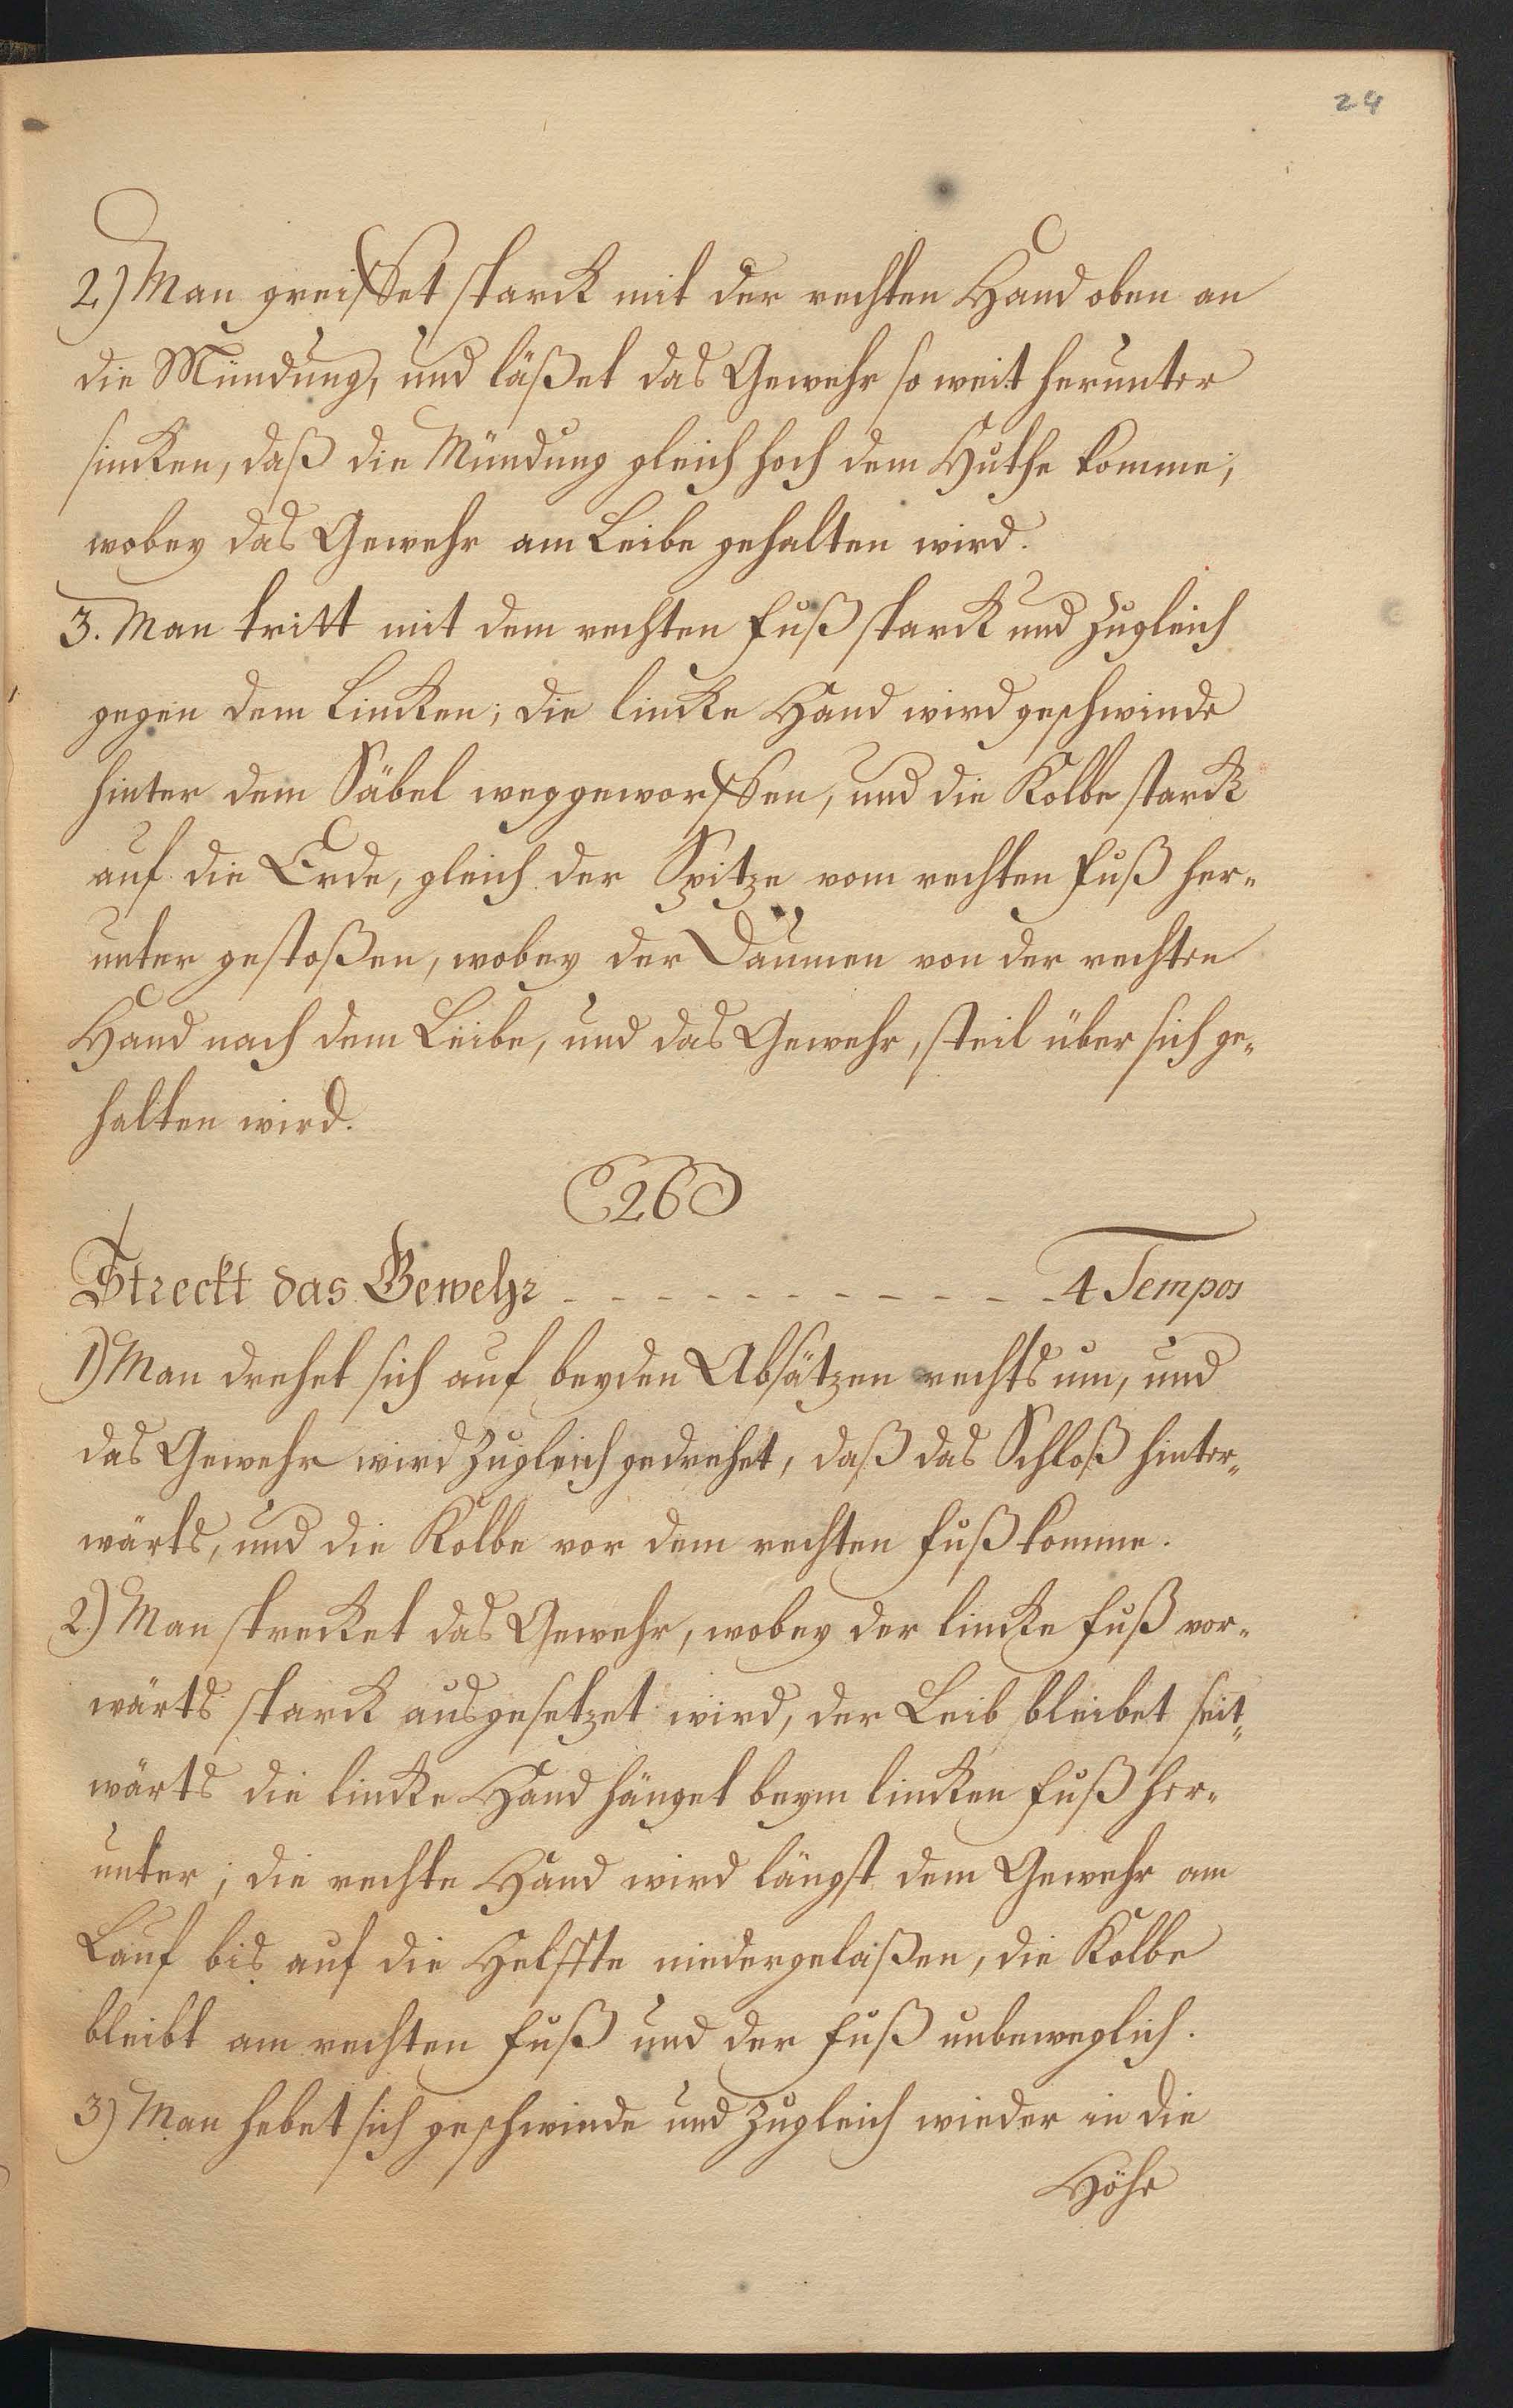 24
2.) Man greiffet starck mit der rechten Hand oben an
die Mündung, und läßet das Gewehr so weit herunter
sincken, daß die Mündung gleich hoch dem Huthe komme,
wobey das Gewehr am Leibe gehalten wird.
3. Man tritt mit dem rechten Fuß starck und zugleich
gegen dem Lincken; die lincke Hand wird geschwinde
hinter dem Säbel weggeworffen, und die Kolbe starck
auf die Erde, gleich der Spitze vom rechten Fuß her„
unter gestoßen, wobey der Daumen von der rechten
Hand nach dem Leibe, und das Gewehr, steil über sich ge„
halten wird.
26
Streckt das Gewehr - - - - - - - - - - - - 4 Tempos
1) Man drehet sich auf beyden Absätzen rechts um, und
das Gewehr wird zugleich gedrehet, daß das Schloß hinter„
wärts, und die Kolbe vor dem rechten Fuß komme.
2.) Man strecket das Gewehr, wobey der lincke Fuß vor„
wärts starck ausgesetzet wird, der Leib bleibet seit„
wärts die lincke Hand hänget beym lincken Fuß her„
unter; die rechte Hand wird längst dem Gewehr am
Lauf bis auf die Helffte niedergelaßen, die Kolbe
bleibt am rechten Fuß und der Fuß unbeweglich.
3) Man hebet sich geschwinde und zugleich wieder in die
Höhe